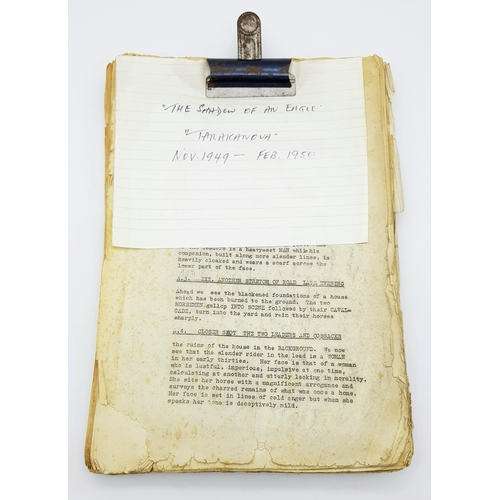 "THE SHADOW OF AN EAGLE"
"TARAKANOVA"
NOV. 1949 — FEB. 1950
is a heavyset MAN while his
companion, built along more slender lines, is
heavily cloaked and wears a scarf across the
lower part of the face.
EXT. ANOTHER STRETCH OF ROAD LATE EVENING
Ahead we see the blackened foundations of a house
which has been burned to the ground. The two
HORSEMEN gallop INTO SCENE followed by their CAVAL-
CADE, turn into the yard and rein their horses
sharply.
CLOSER SHOT THE TWO LEADERS AND COSSACKS
the ruins of the house in the BACKGROUND. We now
see that the slender rider in the lead is a WOMAN
in her early thirties. Her face is that of a woman
who is lustful, imperious, impulsive at one time,
calculating at another and utterly lacking in morality.
She sits her horse with a magnificent arrogance and
surveys the charred remains of what was once a home.
Her face is set in lines of cold anger but when she
speaks her tone is deceptively mild.